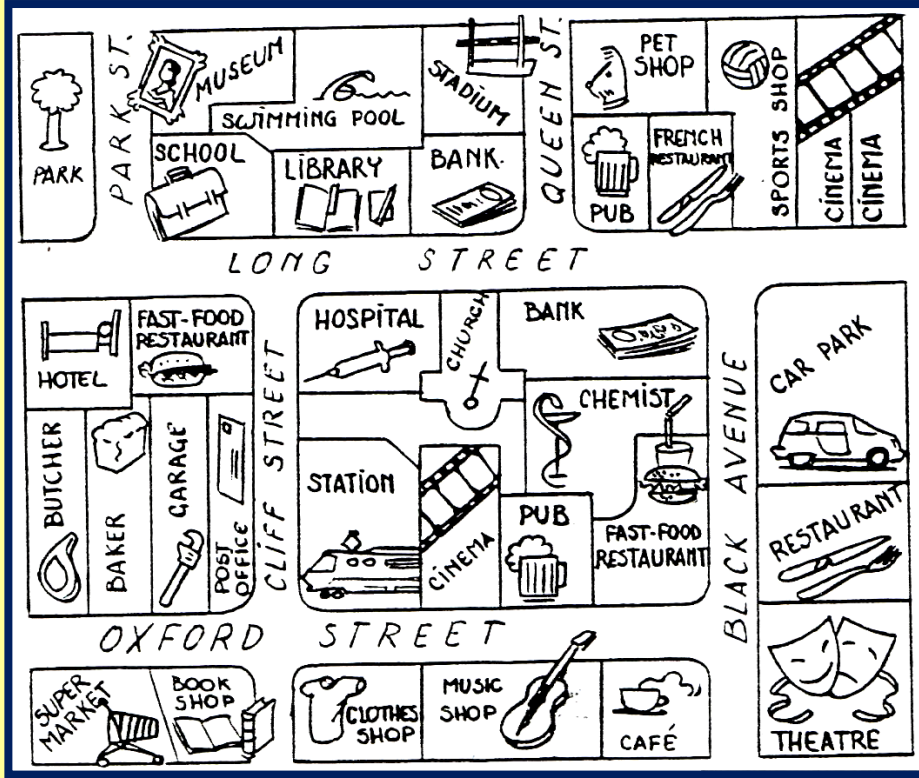 PARK
PARK ST.
MUSEUM
SWIMMING POOL
STADIUM
SCHOOL
LIBRARY
BANK
QUEEN ST.
PET
SHOP
PUB
FRENCH
RESTAURANT
SPORTS SHOP
CINEMA
CINEMA
LONG STREET
HOTEL
FAST-FOOD
RESTAURANT
BUTCHER
BAKER
GARAGE
POST
OFFICE
CLIFF STREET
HOSPITAL
CHURCH
BANK
CHEMIST
STATION
CINEMA
PUB
FAST-FOOD
RESTAURANT
BLACK AVENUE
CAR PARK
RESTAURANT
THEATRE
OXFORD STREET
SUPER
MARKET
BOOK
SHOP
CLOTHES
SHOP
MUSIC
SHOP
CAFÉ